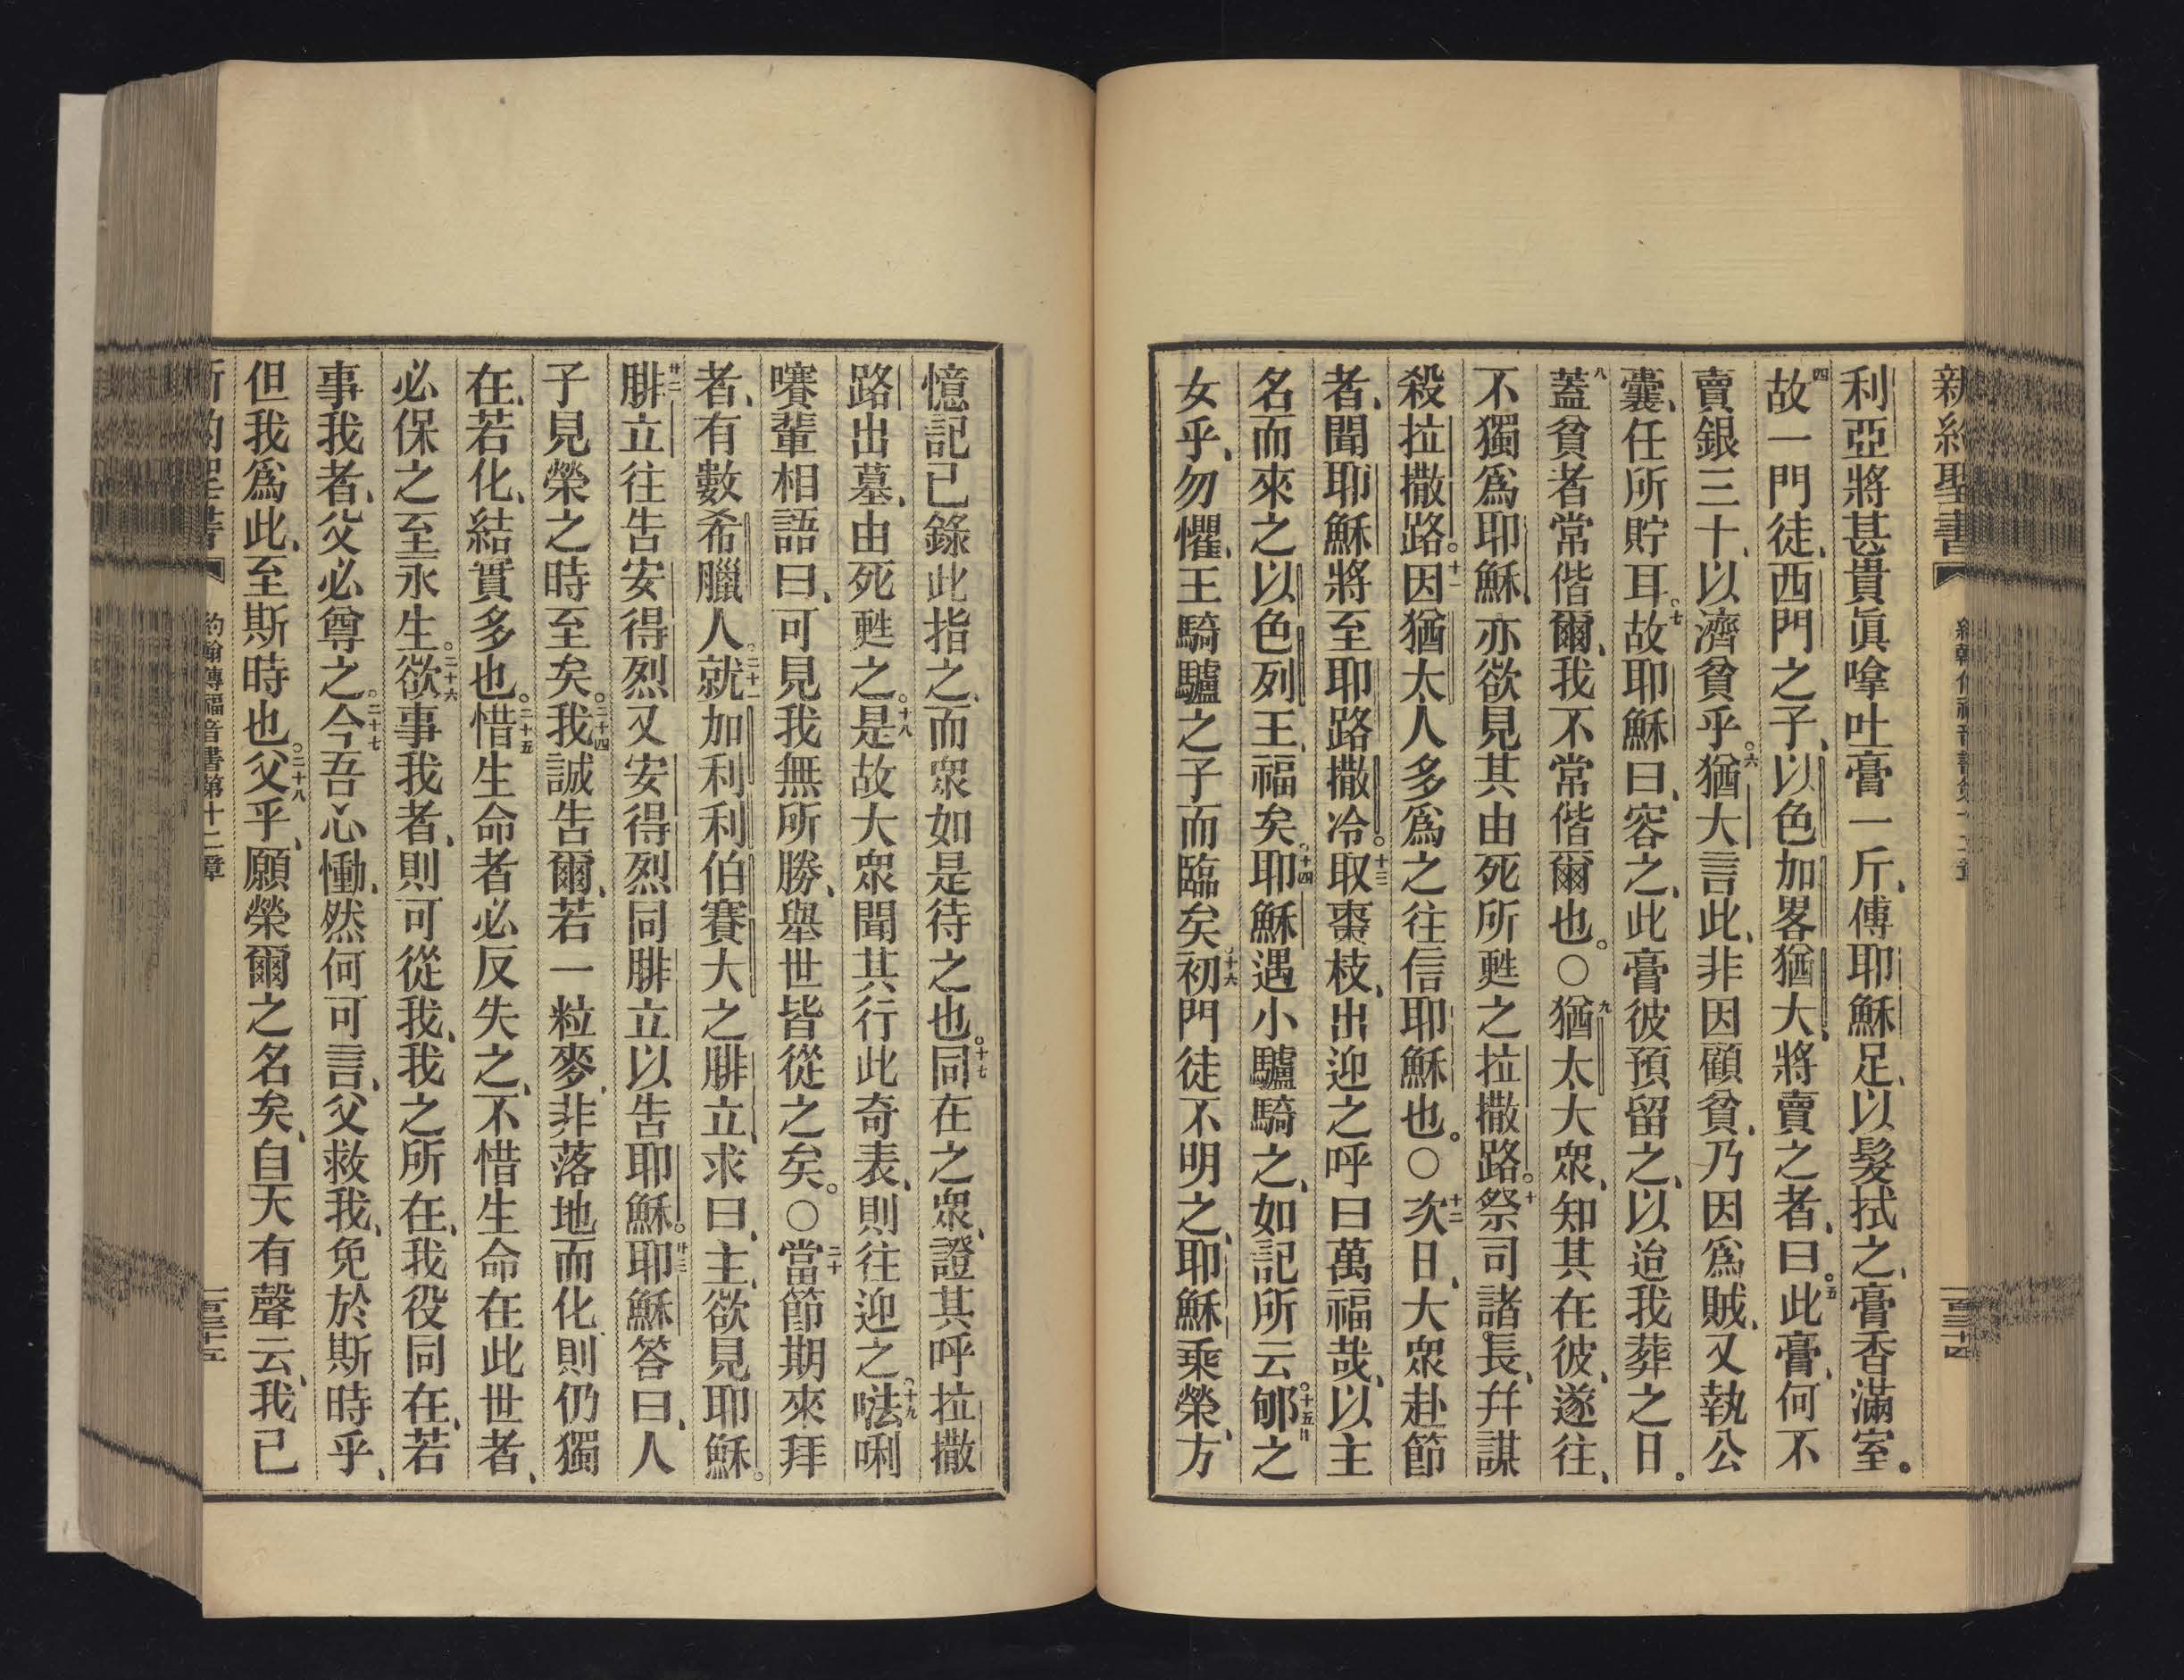 新約聖書 約翰傳福音書第十二章 一百三十四
利亞將甚貴眞嗱吐膏一斤、傅耶穌足、以髮拭之、膏香滿室。
四故一門徒、西門之子、以色加畧猶大、將賣之者、曰。五此膏、何不
賣銀三十、以濟貧乎。六猶大言此、非因顧貧、乃因爲賊、又執公
囊、任所貯耳。七故耶穌曰、容之、此膏彼預留之、以迨我葬之日。
八蓋貧者常偕爾、我不常偕爾也。○九猶太大衆、知其在彼、遂往、
不獨爲耶穌、亦欲見其由死所甦之拉撒路。十祭司諸長、幷謀
殺拉撒路。十一因猶太人多爲之往信耶穌也。○十二次日、大衆赴節
者、聞耶穌將至耶路撒冷。十三取棗枝、出迎之呼曰萬福哉、以主
名而來之以色列王、福矣。十四耶穌遇小驢騎之、如記所云。十五郇之
女乎、勿懼、王騎驢之子而臨矣。十六初門徒不明之、耶穌乘榮、方
憶記已錄此指之、而衆如是待之也。十七同在之衆、證其呼拉撒
路出墓、由死甦之。十八是故大衆聞其行此奇表、則往迎之。十九㗧唎
㘔輩相語曰、可見我無所勝、舉世皆從之矣。○二十當節期來拜
者、有數希臘人。二十一就加利利伯賽大之腓立、求曰、主、欲見耶穌。
廿二腓立往告安得烈又安得烈同腓立以告耶穌。廿三耶穌答曰、人
子見榮之時至矣。二十四我誠告爾、若一粒麥、非落地而化則仍獨
在、若化、結實多也。二十五惜生命者必反失之、不惜生命在此世者、
必保之至永生。二十六欲事我者、則可從我、我之所在、我役同在、若
事我者、父必尊之。二十七今吾心慟、然何可言、父救我、免於斯時乎、
但我爲此、至斯時也。二十八父乎、願榮爾之名矣、自天有聲云、我已
新約聖書 約翰傳福音書第十二章 一百三十五